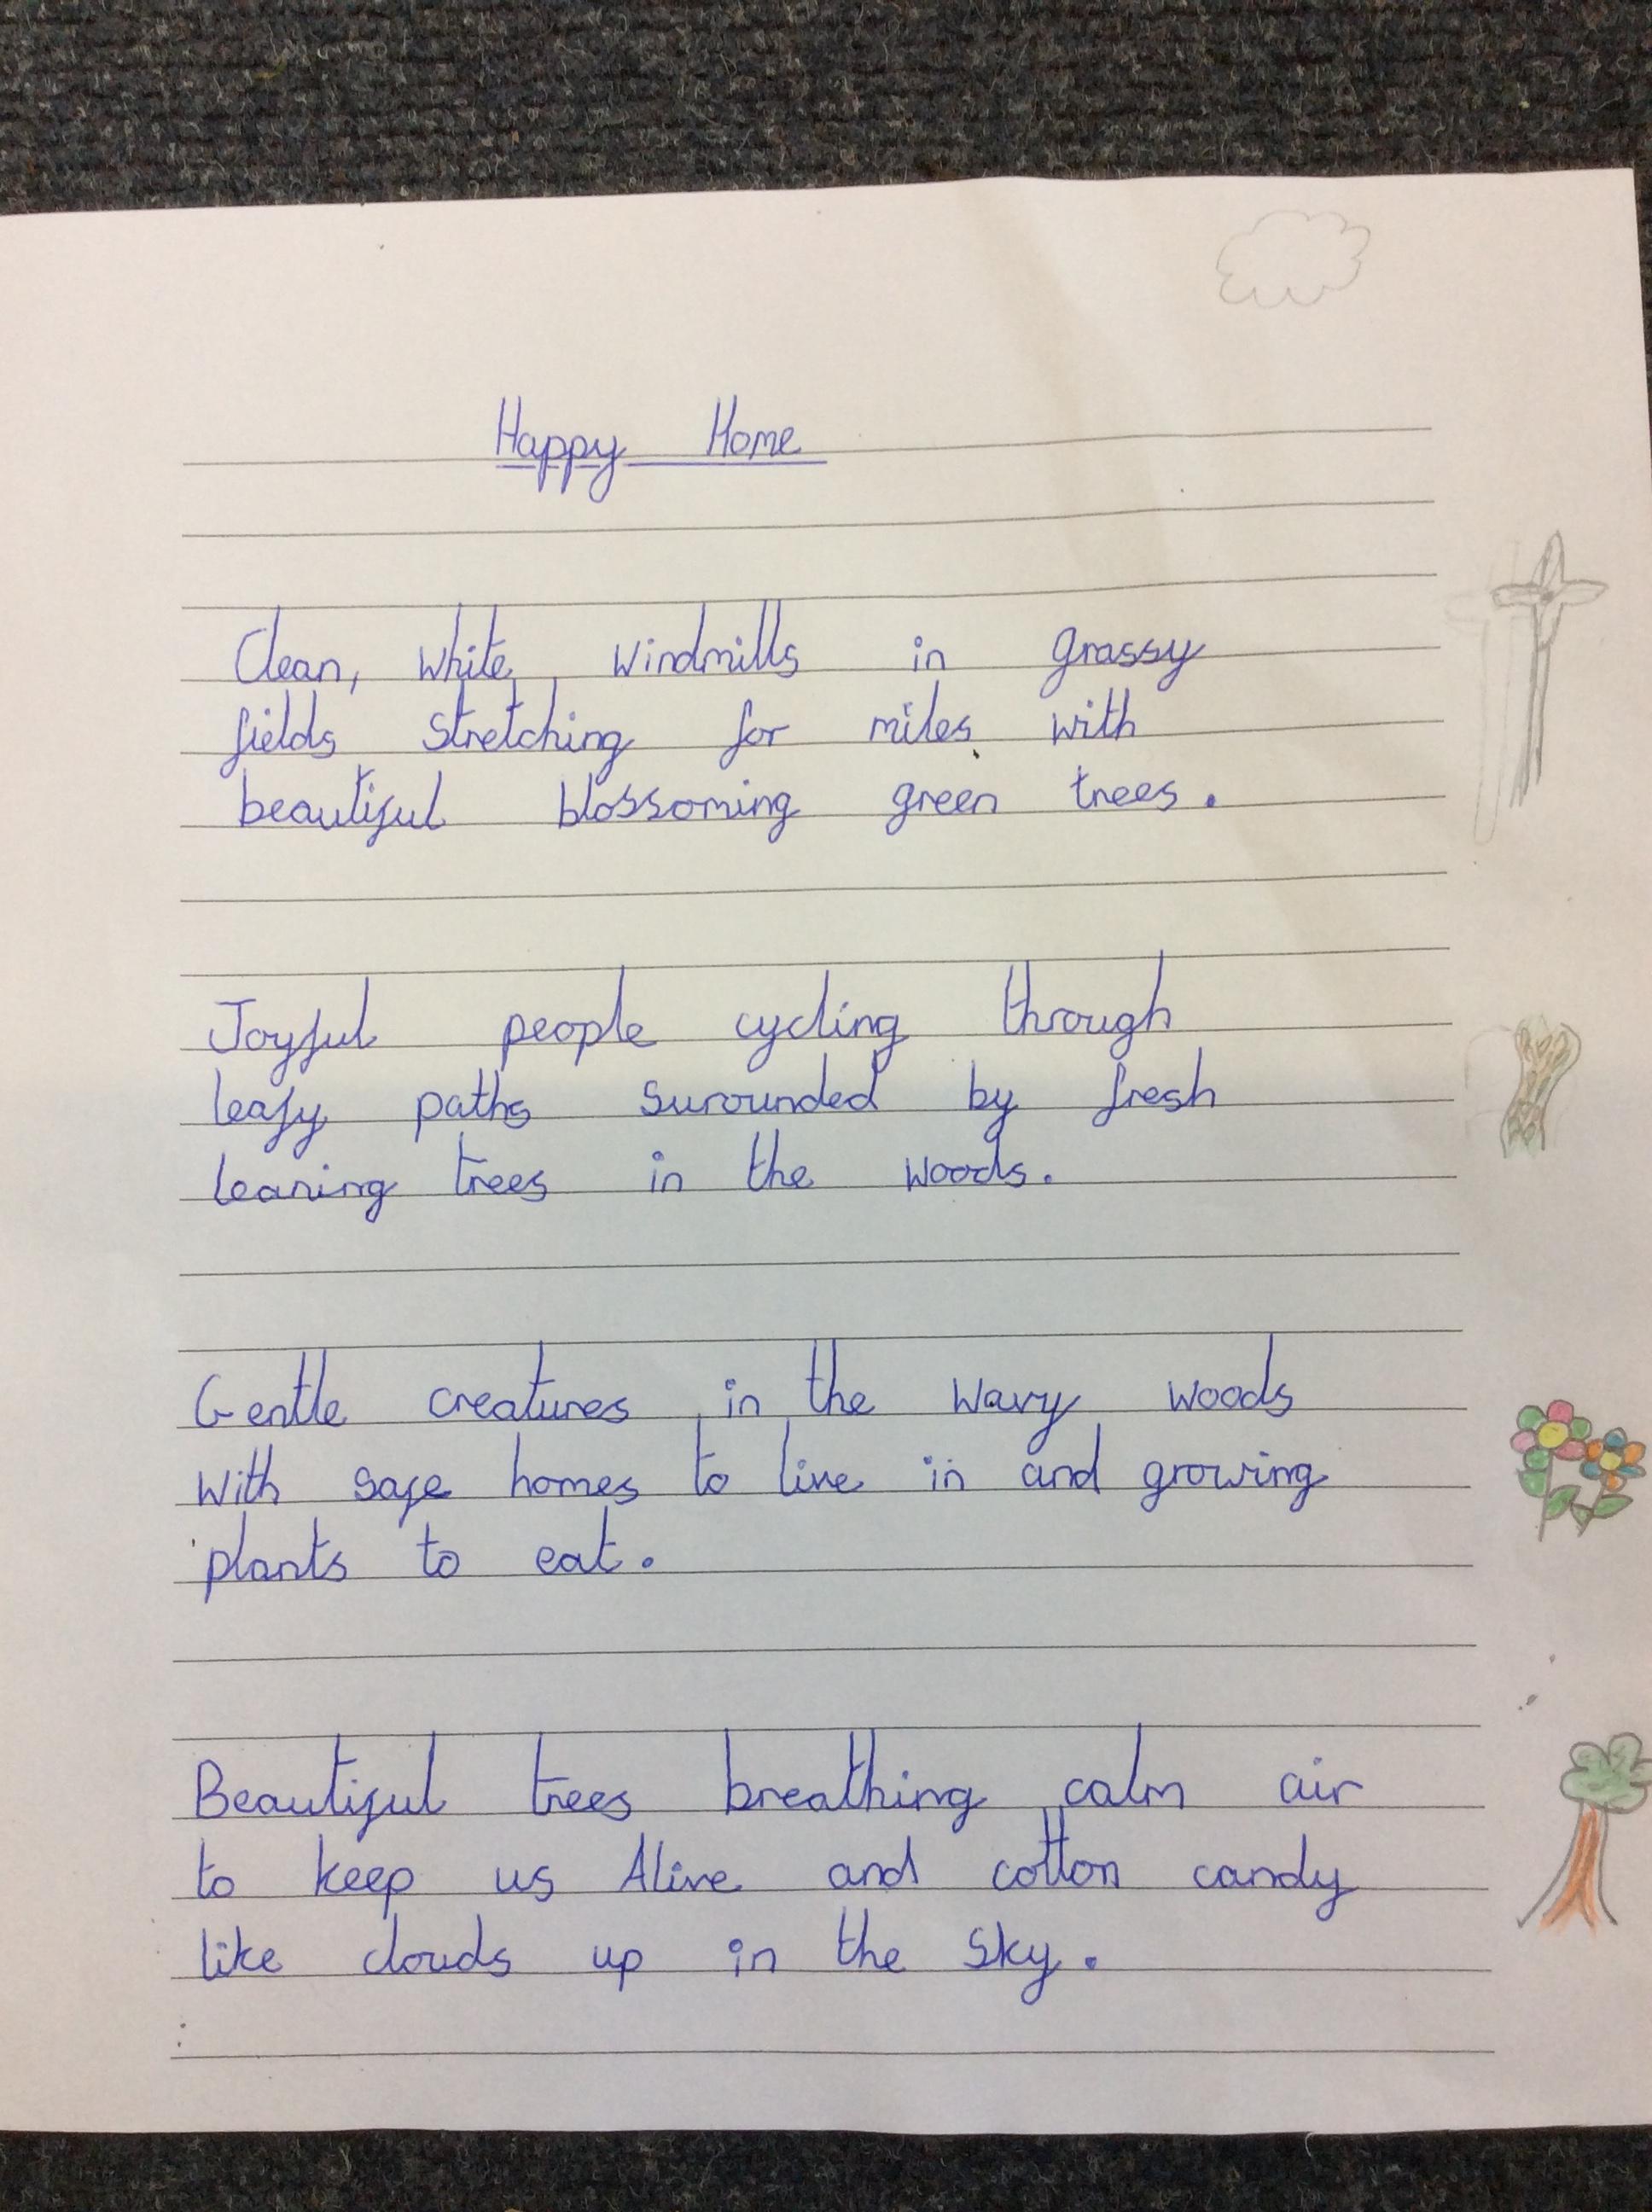 Happy Home
Clean, white windmills in grassy
fields stretching for miles with
beautiful blossoming green trees.
Joyful people cycling through
leafy paths surounded by fresh
leaning trees in the woods.
Gentle creatures in the wavy woods
with safe homes to live in and growing
plants to eat.
Beautiful trees breathing calm air
to keep us Alive and cotton candy
like clouds up in the sky.